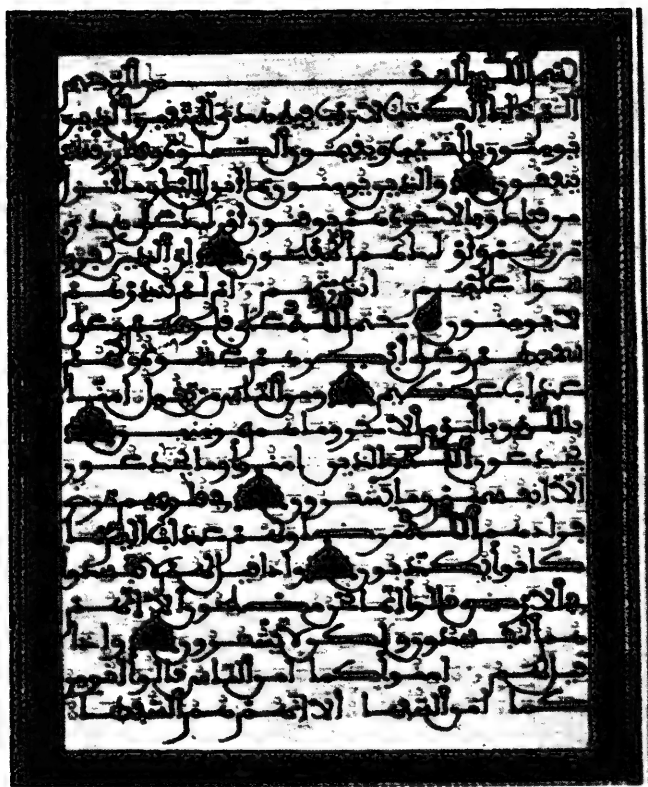 بسم الله الرحمن الرحيم
الم ذلك الكتب لا ريب فيه هدى للمتقين الذين
يومنون بالغيب ويقيمون الصلوة ومما رزقنهم
ينفقون والذين يومنون بما أنزل إليك وما أنزل
من قبلك وبالاخرة هم يوقنون أولئك على هدى من
ربهم وأولئك هم المفلحون إن الذين كفروا
سواء عليهم ءانذرتهم أم لم تنذرهم
لا يومنون ختم الله على قلوبهم وعلى
سمعهم وعلى أبصرهم غشوة ولهم
عذاب عظيم ومن الناس من يقول ءامنا
بالله وباليوم الاخر وما هم بمومنين
يخدعون الله والذين ءامنوا وما يخدعون
إلا أنفسهم وما يشعرون في قلوبهم مرض
فزادهم الله مرضا ولهم عذاب أليم بما
كانوا يكذبون وإذا قيل لهم لا تفسدوا
في الارض قالوا إنما نحن مصلحون ألا إنهم
هم المفسدون ولكن لا يشعرون وإذا
قيل لهم ءامنوا كما ءامن الناس قالوا أنومن
كما ءامن السفهاء ألا إنهم هم السفهاء